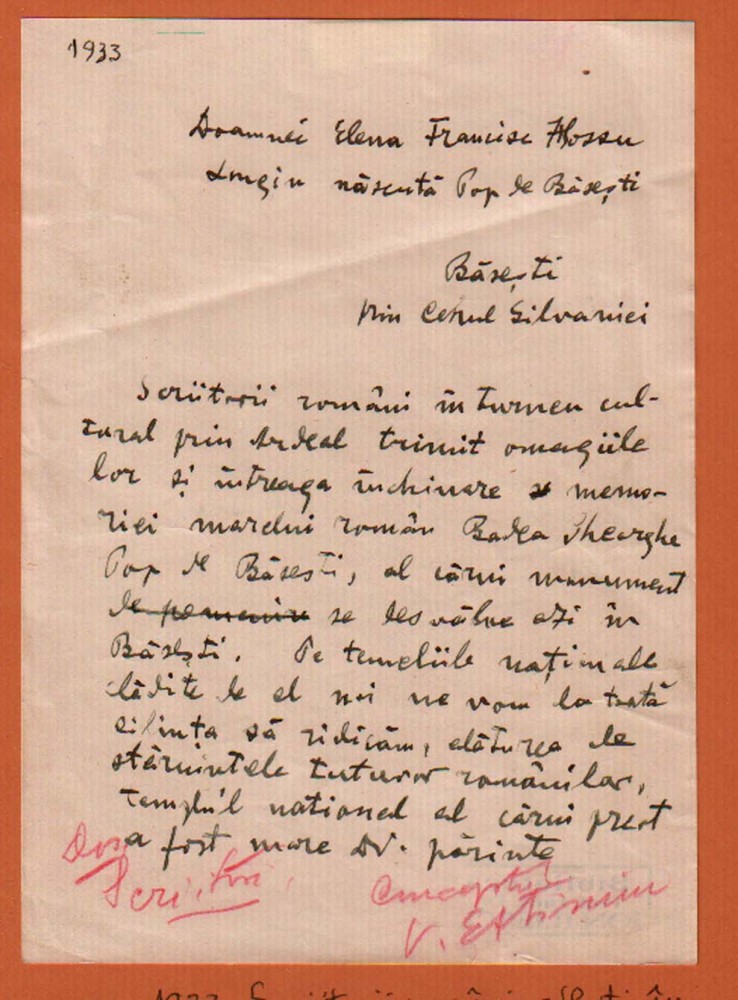 1933
Doamnei Elena Francisc Hossu
Longin născută Pop de Băsești
Băsești
prin Cehul Silvaniei
Scriitorii români în turneu cul-
tural prin Ardeal trimit omagiile
lor și întreaga închinare memo-
riei marelui român Badea Gheorghe
Pop de Băsești, al cărui monument
se desvălue azi în
Băsești. Pe temeliile naționale
clădite de el noi ne vom da toată
silința să ridicăm, alăturea de
stăruințele tuturor românilor,
templul național al cărui preot
a fost mare Dv. părinte
Scriitori
Conceptul
V. Eftimiu
1933 Scriitorii